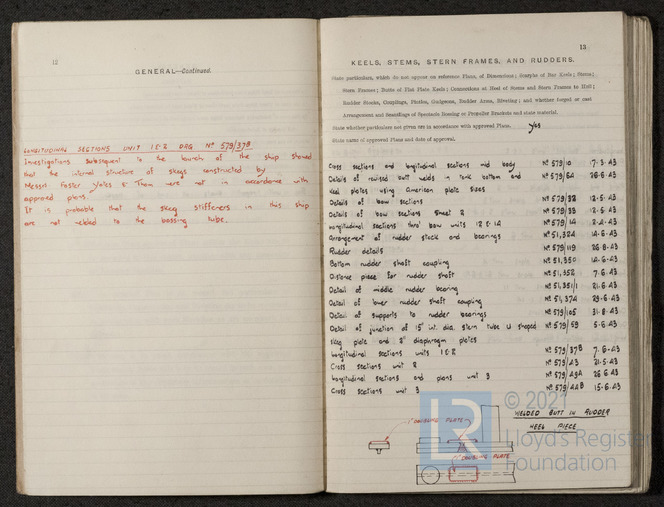 12
GENERAL—Continued.
LONGITUDINAL SECTIONS UNIT 1 & 2 DRG Nº 579/37B
Investigations subsequent to the launch of the ship showed
that the internal structure of skegs constructed by
Messrs Foster Yates & Thom were not in accordance with
approved plans.
It is probable that the skeg stiffeners in this ship
are not welded to the bossing tube.
13
KEELS, STEMS, STERN FRAMES, AND RUDDERS.
State particulars, which do not appear on reference Plans, of Dimensions; Scarphs of Bar Keels; Stems;
Stern Frames; Butts of Flat Plate Keels; Connections at Heel of Stems and Stern Frames to Hull;
Rudder Stocks, Couplings, Pintles, Gudgeons, Rudder Arms, Riveting; and whether forged or cast
Arrangement and Scantlings of Spectacle Bossing or Propeller Brackets and state material.
State whether particulars not given are in accordance with approved Plans. Yes
State name of approved Plans and date of approval.
Cross sections and longitudinal sections mid body Nº 579/10 17.3.43
Details of revised butt welds in tank bottom and Nº 579/6A 26.6.43
keel plates using american plate sizes
Details of bow sections Nº 579/32 12.5.43
Details of bow sections sheet 2 Nº 579/33 12.5.43
Longitudinal sections thro' bow units 12 & 14 Nº 579/14 2.4.43
Arrangement of rudder stock and bearings Nº 51,324 14.6.43
Rudder details Nº 579/119 26.8.43
Bottom rudder shaft coupling Nº 51,350 14.6.43
Distance piece for rudder shaft Nº 51,352 7.6.43
Detail of middle rudder bearing Nº 51,351/1 21.6.43
Detail of lower rudder shaft coupling Nº 51,374 29.6.43
Detail of supports to rudder bearings Nº 579/105 31.8.43
Detail of junction of 15" int. dia. stern tube U shaped Nº 579/59 5.6.43
skeg plate and 2" diaphragm plates
Longitudinal sections units 1 & 2 Nº 579/37B 7.6.43
Cross sections unit 2 Nº 579/43 21.5.43
Longitudinal sections and plans unit 3 Nº 579/49A 26.6.43
Cross sections unit 3 Nº 579/44B 15.6.43
WELDED BUTT IN RUDDER
HEEL PIECE
1" DOUBLING PLATE
1" DOUBLING PLATE
© 2021
LR
Lloyd's Register
Foundation